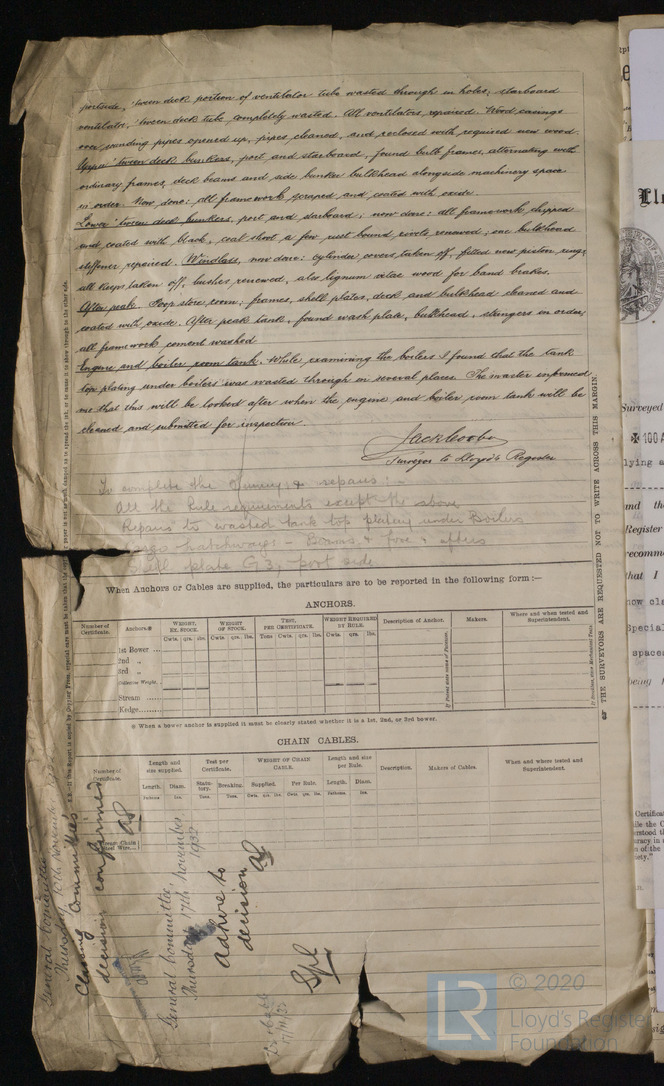 portside, 'tween deck portion of ventilator tube wasted through in holes, starboard
ventilator, 'tween deck tube completely wasted. All ventilators repaired. Wood casings
over sounding pipes opened up, pipes cleaned, and reclosed with required new wood.
Upper 'tween deck bunkers, port and starboard, found bulb frames, alternating with
ordinary frames, deck beams and side bunker bulkhead alongside machinery space
in order. Now done: all framework scraped and coated with oxide.
Lower 'tween deck bunkers, port and starboard, now done: all framework chipped
and coated with black, coal shoot a few rust bound rivets renewed; one bulkhead
stiffener repaired. Windlass, now done: cylinder covers taken off, fitted new piston rings,
all keeps taken off, bushes renewed, also lignum vitae wood for band brakes.
After peak. Poop store room: frames, shell plates, deck and bulkhead cleaned and
coated with oxide. After peak tank, found wash plate, bulkhead, stringers in order;
all framework cement washed
Engine and boiler room tank. While examining the boilers I found that the tank
top plating under boilers was wasted through in several places. The master informed
me that this will be looked after when the engine and boiler room tank will be
cleaned and submitted for inspection.
Surveyor to Lloyd's Register
To complete the Survey & repairs :-
All the Rule requirements except the above
Repairs to wasted tank top plating under Boilers
hatchways - Beams & fore & afters
Shell plate G3, port side
When Anchors or Cables are supplied, the particulars are to be reported in the following form :—
ANCHORS.
Number of Certificate. Anchors.* WEIGHT, EX. STOCK. WEIGHT OF STOCK. TEST, PER CERTIFICATE. WEIGHT REQUIRED BY RULE. Description of Anchor. Makers. Where and when tested and Superintendent.
Cwts. qrs. lbs. Cwts. qrs. lbs. Tons Cwts. qrs. lbs. Cwts. qrs. lbs.
1st Bower
2nd „
3rd „
Collective Weight.
Stream
Kedge
* When a bower anchor is supplied it must be clearly stated whether it is a 1st, 2nd, or 3rd bower.
CHAIN CABLES.
Number of Certificate. Length and size supplied. Test per Certificate. WEIGHT OF CHAIN CABLE. Length and size per Rule. Description. Makers of Cables. When and where tested and Superintendent.
Length. Diam. Statutory. Breaking. Supplied. Per Rule. Length. Diam.
Fathoms. Ins. Tons. Tons. Cwts. qrs. lbs. Cwts. qrs. lbs. Fathoms. Ins.
THE SURVEYORS ARE REQUESTED NOT TO WRITE ACROSS THIS MARGIN.
General Committee
Thursday 10th November
Classing Committee's
decision confirmed
General Committee,
Thursday 17th November,
1932
Adhere to
decision
Spl
Surveyed
100 A
lying a
and th
Register
recomm
that I
now cla
Special
space
being
Certificat
LR
© 2020
Lloyd's Register
Foundation